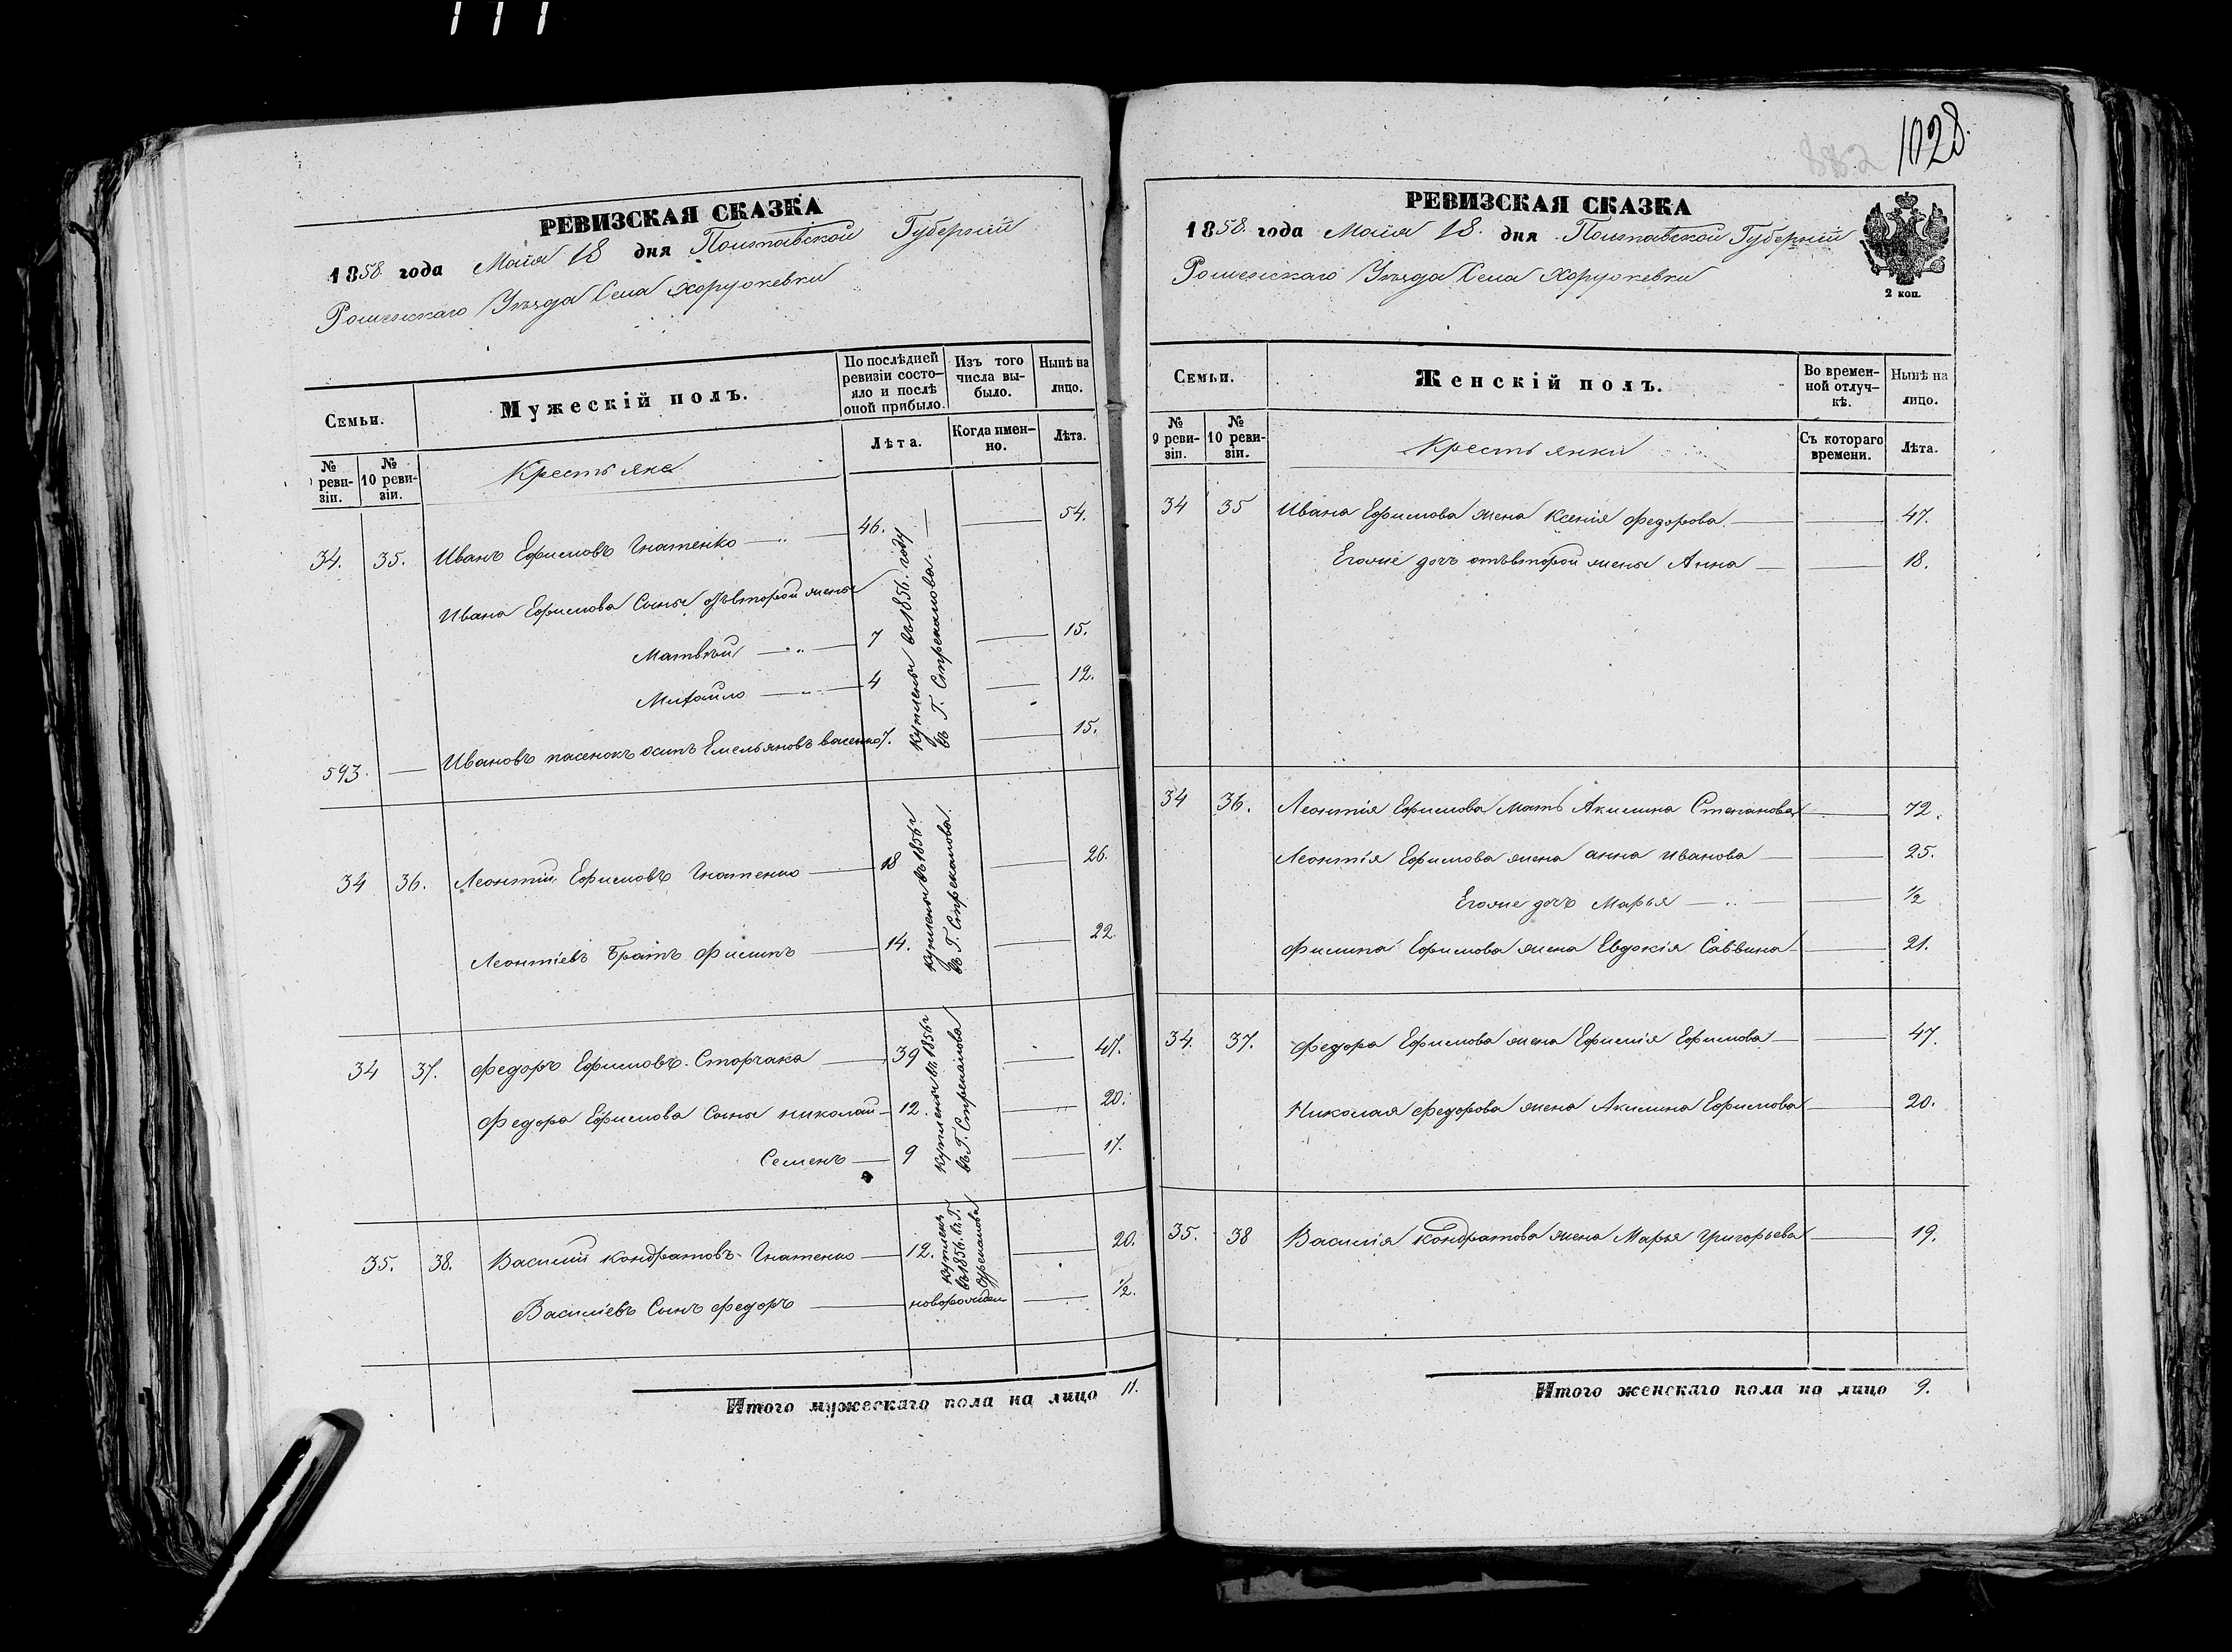 1028.
882
РЕВИЗСКАЯ СКАЗКА
1858 года Маія 18 дня Полтавской Губерніи
Роменскаго Уѣзда Села Хоружевки
Семьи.
Мужескій полъ.
По послѣдней ревизіи состо-
яло и послѣ
оной прибыло.
Изъ того
числа вы-
было.
Нынѣ на
лицо.
№ реви-
зіи.
№
10 реви-
зіи.
Крестьяне
Лѣта.
Когда имен-
но.
Лѣта.
34. 35. Иванъ Ефимовъ Гнатенко — 46. — 54.
Ивана Ефимова Сыны отъ второй жены
Матвѣй — 7 — 15.
Михайло — 4 — 12.
куплены въ 1856. году
у Г. Стремоухова.
593. — Ивановъ пасенокъ Осипъ Емельяновъ 7. — 15.
34 36. Леонтій Ефимовъ Гнатенко — 18 — 26.
Леонтіевъ Братъ Филипъ — 14. — 22.
куплены въ 1856 г
34 37. Федоръ Ефимовъ Сторчака — 39 — 47.
Федора Ефимова Сыны Николай — 12. — 20.
Семенъ — 9 — 17.
куплены въ 1856 г
35. 38. Василій Кондратовъ Гнатенко — 12. — 20.
купленъ
въ 1856.
Василіевъ Сынъ Федоръ — новорожден — 1/2.
Итого мужескаго пола на лицо 11.
РЕВИЗСКАЯ СКАЗКА
1858. года Маія 18. дня Полтавской Губерніи
Роменскаго Уѣзда Села Хоружевки
2 коп.
Семьи.
Женскій полъ.
Во времен-
ной отлуч-
кѣ.
Нынѣ на
лицо.
№
9 реви-
зіи.
№
10 реви-
зіи.
Крестьянки
Съ котораго
времени.
Лѣта.
34 35 Ивана Ефимова жена Ксенія Федорова. — 47.
Егоже дочь отъ второй жены Анна — 18.
34 36. Леонтія Ефимова Мать Акилина Степанова — 72.
Леонтія Ефимова жена Анна Иванова — 25.
Егоже дочь Марья — 1/2
Филипа Ефимова жена Евдокія Саввина — 21.
34. 37. Федора Ефимова жена Ефимія Ефимова — 47.
Николая Федорова жена Акилина Ефимова — 20.
35. 38 Василія Кондратова жена Марья Григорьева — 19.
Итого женскаго пола на лицо 9.